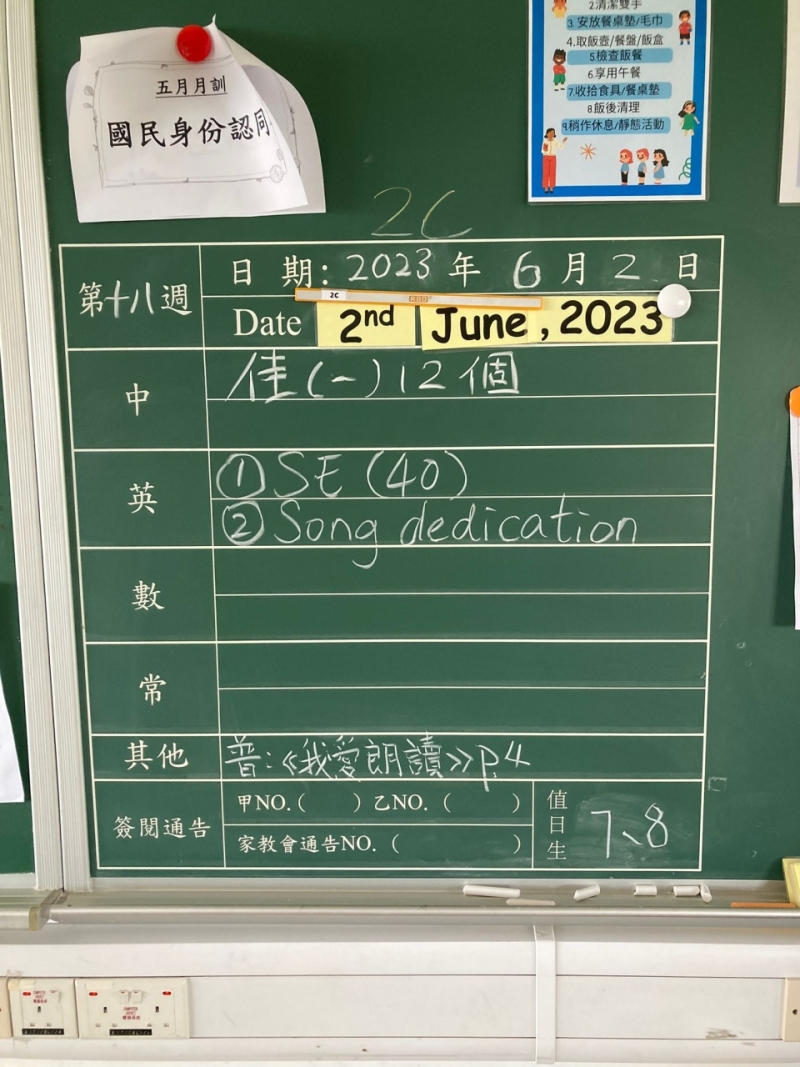 五月月訓
國民身份認同
2.清潔雙手
3.安放餐桌墊/毛巾
4.取飯壺/餐盤/飯盒
5檢查飯餐
6.享用午餐
7.收拾食具/餐桌墊
8.飯後清理
9.稍作休息/靜態活動
2C
第十八週
日期:2023年6月2日
2C
Date 2nd June, 2023
中
佳(一)12個
英
①SE(40)
②Song dedication
數
常
其他
普:《我愛朗讀》p.4
簽閱通告
甲NO.( )乙NO.( )
家教會通告NO.( )
值日生
7、8